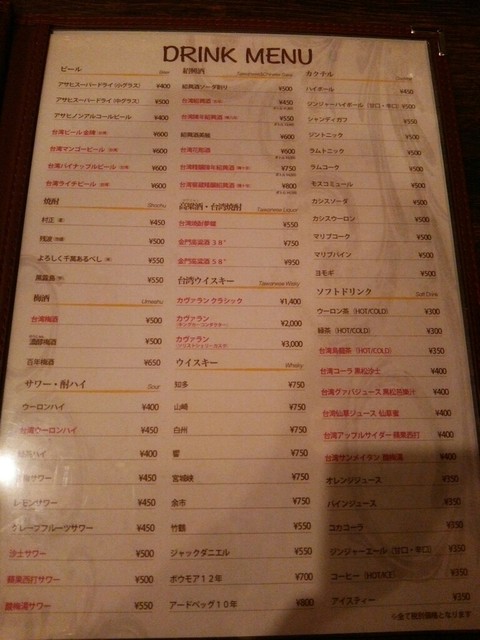 DRINK MENU
ビール
Beer
アサヒスーパードライ(小グラス) ¥400
アサヒスーパードライ(中グラス) ¥500
アサヒノンアルコールビール ¥400
台湾ビール金牌 ¥600
台湾マンゴービール ¥600
台湾パイナップルビール ¥600
台湾ライチビール ¥600
焼酎
Shochu
村正 ¥450
残波 ¥500
よろしく千萬あるべし ¥550
¥550
梅酒
Umeshu
台湾梅酒 ¥500
梅酒 ¥500
百年梅酒 ¥650
サワー・酎ハイ
Sour
ウーロンハイ ¥400
台湾ウーロンハイ ¥450
ハイ ¥400
サワー ¥450
レモンサワー ¥450
グレープフルーツサワー ¥450
沙士サワー ¥500
蘋果西打サワー ¥500
酸梅湯サワー ¥550
紹興酒
紹興酒ソーダ割り ¥500
台湾紹興酒 ¥450
台湾陳年紹興酒 ¥550
紹興酒 ¥600
台湾花彫酒 ¥600
¥750
¥800
高粱酒・台湾焼酎
Taiwanese Liquor
¥550
金門高粱酒 38° ¥750
金門高粱酒 58° ¥950
台湾ウイスキー
Taiwanese Wisky
カヴァラン クラシック ¥1,400
カヴァラン ¥2,000
カヴァラン ¥3,000
ウイスキー
Whisky
知多 ¥750
山崎 ¥750
白州 ¥750
響 ¥750
宮城峡 ¥750
余市 ¥750
竹鶴 ¥550
ジャックダニエル ¥550
ボウモア12年 ¥700
アードベッグ10年 ¥800
カクテル
ハイボール ¥450
ジンジャーハイボール(甘口・辛口) ¥500
シャンディガフ ¥550
ジントニック ¥500
ラムトニック ¥500
ラムコーク ¥500
モスコミュール ¥500
カシスソーダ ¥500
カシスウーロン ¥500
マリブコーク ¥500
マリブパイン ¥500
ヨモギ ¥500
ソフトドリンク
Soft Drink
ウーロン茶 (HOT/COLD) ¥300
緑茶 (HOT/COLD) ¥300
台湾烏龍茶 (HOT/COLD) ¥350
台湾コーラ 黒松沙士 ¥400
台湾グァバジュース 黒松芭樂汁 ¥400
台湾仙草ジュース 仙草蜜 ¥400
台湾アップルサイダー 蘋果西打 ¥400
台湾サンメイタン 酸梅湯 ¥400
オレンジジュース ¥350
パインジュース ¥350
コカコーラ ¥350
ジンジャーエール(甘口・辛口) ¥350
コーヒー (HOT/ICE) ¥350
アイスティー ¥350
※全て税別価格となります